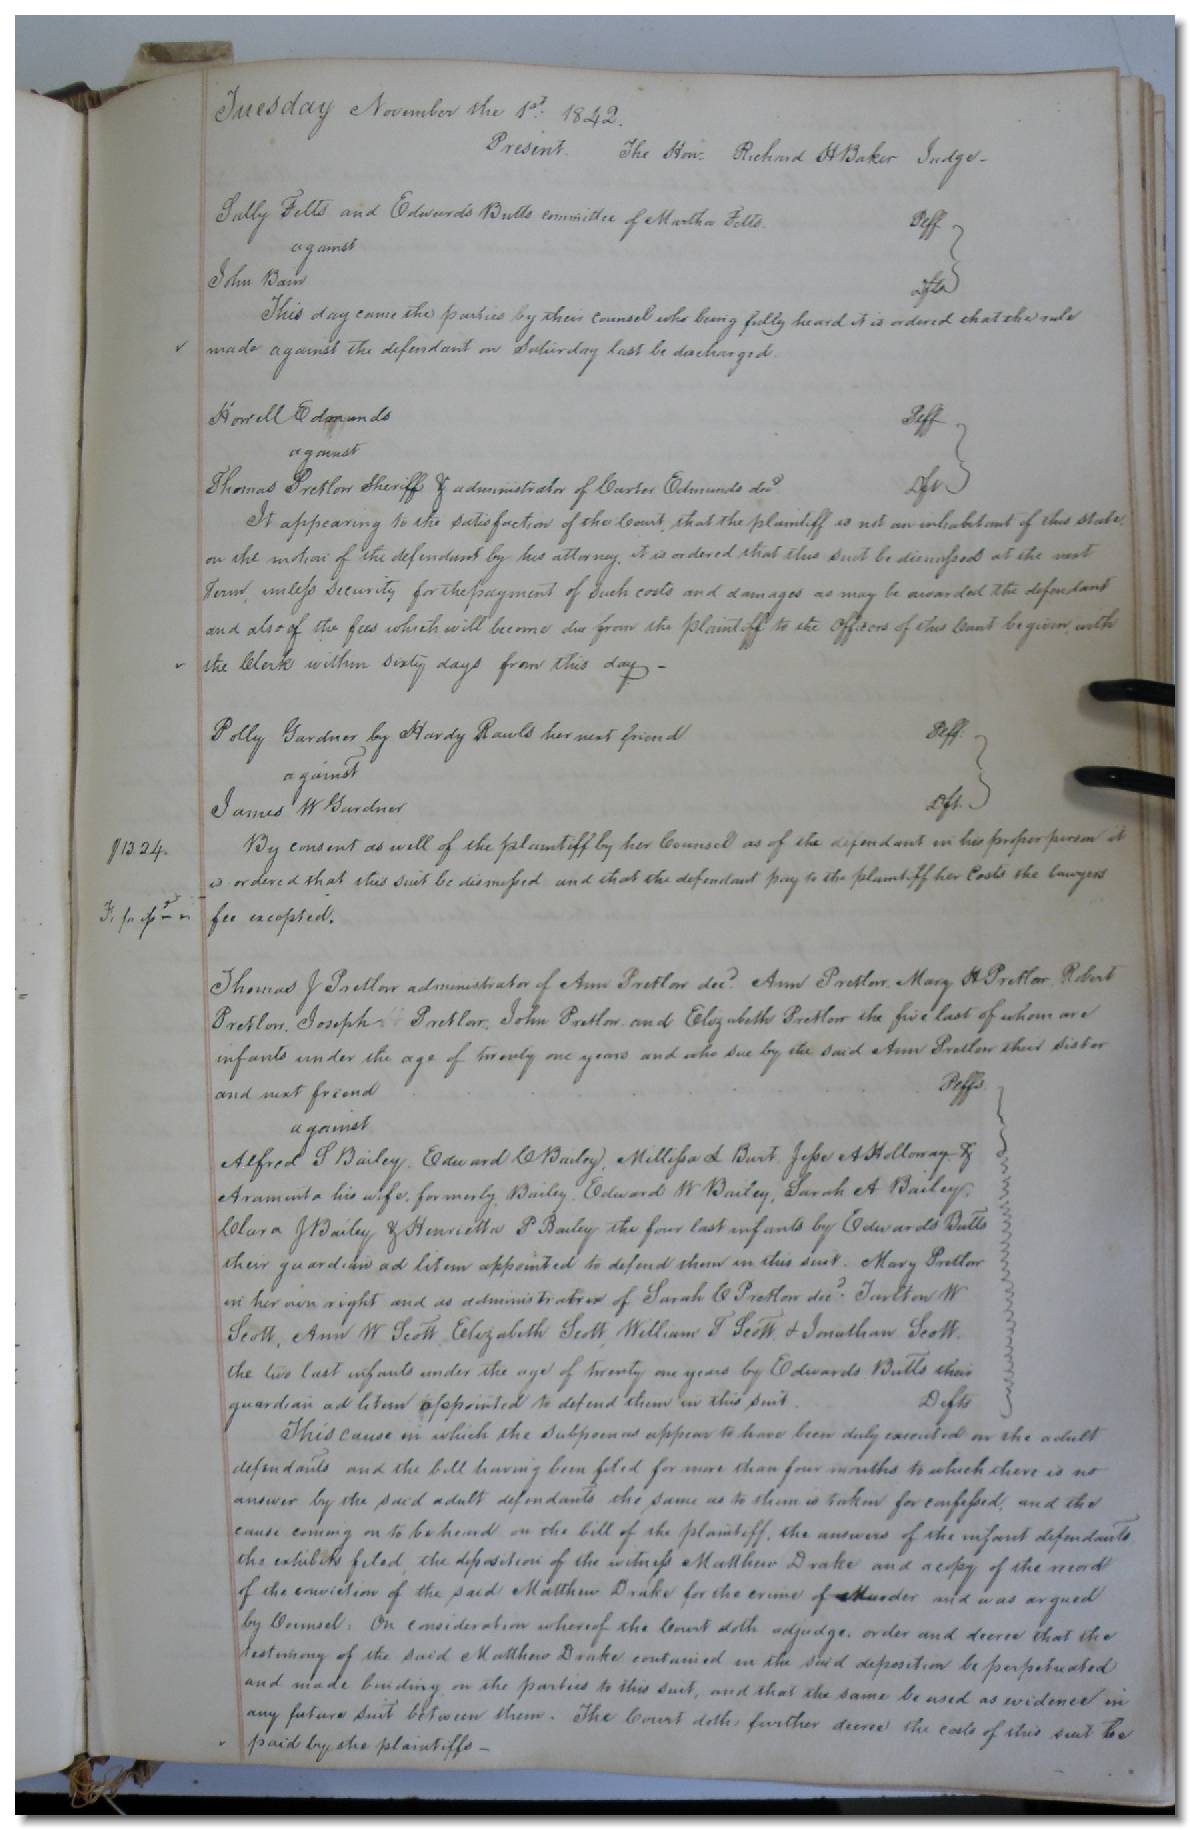 Tuesday November the 1st. 1842.
Present. The Hon. Richard H Baker Judge -
Sally Felts and Edwards Butts committee of Martha Felts. Plff
against
John Bain Dfts
This day came the parties by their counsel who being fully heard it is ordered that the rule
made against the defendant on Saturday last be discharged.
Howell Edmunds Plff
against
Thomas Pretlow Sheriff & administrator of Carter Edmunds decd Dft.
It appearing to the satisfaction of the Court, that the plaintiff is not an inhabitant of this state,
on the motion of the defendant by his attorney, it is ordered that this suit be dismissed at the next
Term, unless security for the payment of such costs and damages as may be awarded the defendant
and also of the fees which will become due from the plaintiff to the Officers of this Court be given with
the Clerk within sixty days from this day -
Polly Gardner by Hardy Rawls her next friend Plff.
against
James W Gardner Dft.
$13.24. By consent as well of the plaintiff by her Counsel as of the defendant in his proper person it
is ordered that this suit be dismissed and that the defendant pay to the plaintiff her Costs the lawyers
fee excepted.
Thomas J Pretlow administrator of Ann Pretlow decd. Ann Pretlow, Mary H Pretlow, Robert
Pretlow, Joseph Pretlow, John Pretlow and Elizabeth Pretlow the five last of whom are
infants under the age of twenty one years and who sue by the said Ann Pretlow their sister
and next friend Plffs.
against
Alfred S Bailey, Edward C Bailey, Millissa L Burt, Jesse A Holloway &
Araminta his wife, formerly Bailey, Edward W Bailey, Sarah A Bailey,
Clara J Bailey & Henrietta P Bailey the four last infants by Edwards Butts
their guardian ad litem appointed to defend them in this suit. Mary Pretlow
in her own right and as administratrix of Sarah C Pretlow decd. Tarlton W
Scott, Ann W Scott, Elizabeth Scott, William T Scott, & Jonathan Scott,
the two last infants under the age of twenty one years by Edwards Butts their
guardian ad litem appointed to defend them in this suit. Defts
This cause in which the subpoenas appear to have been duly executed on the adult
defendants and the bill having been filed for more than four months to which there is no
answer by the said adult defendants the same as to them is taken for confessed, and the
cause coming on to be heard on the bill of the plaintiff, the answers of the infant defendants,
the exhibits filed, the deposition of the witness Matthew Drake and a copy of the record
of the conviction of the said Matthew Drake for the crime of Murder and was argued
by Counsel: On consideration whereof the Court doth adjudge, order and decree that the
testimony of the said Matthew Drake contained in the said deposition be perpetuated
and made binding on the parties to this suit, and that the same be used as evidence in
any future suit between them. The Court doth further decree the costs of this suit be
paid by the plaintiffs -